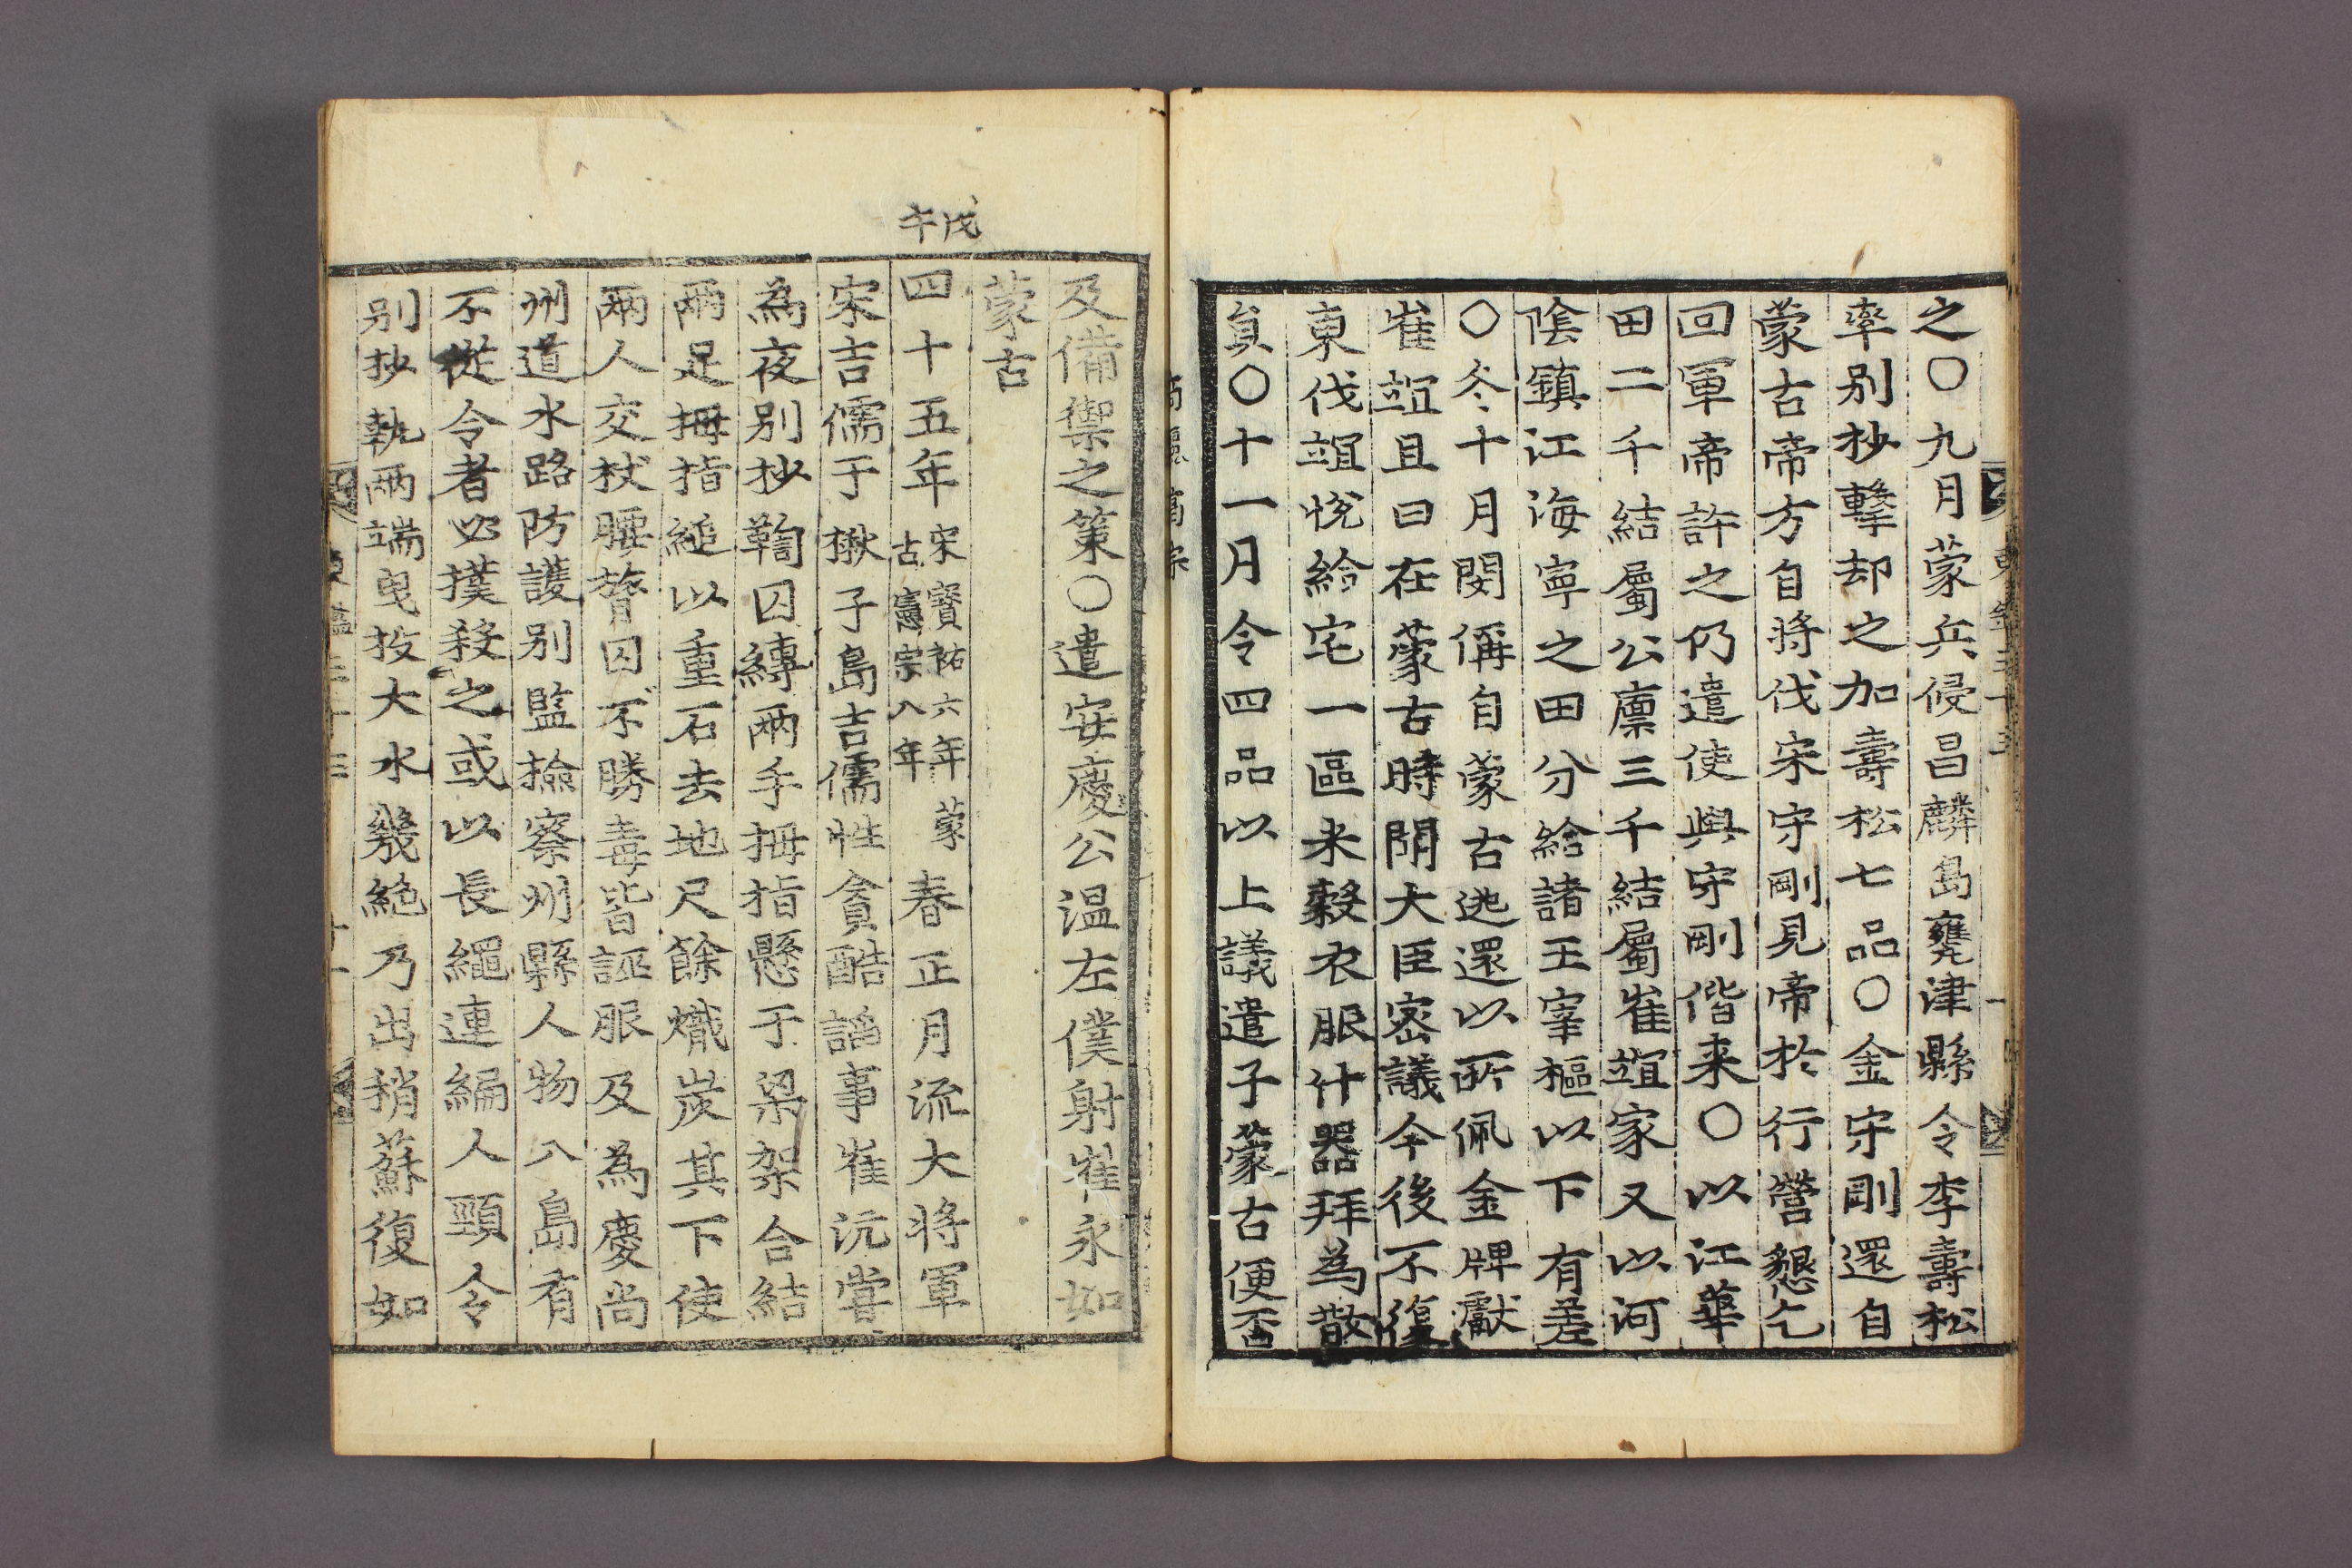 之〇九月蒙兵侵昌麟島甕津縣令李壽松
率別抄擊却之加壽松七品〇金守剛還自
蒙古帝方自將伐宋守剛見帝於行營懇乞
回軍帝許之仍遣使與守剛偕来〇以江華
田二千結屬公廩三千結屬崔竩家又以河
陰鎮江海寧之田分給諸王宰樞以下有差
〇冬十月閔偁自蒙古逃還以所佩金牌獻
崔竩且曰在蒙古時聞大臣密議今後不復
東伐竩悅給宅一區米穀衣服什器拜為散
貟〇十一月令四品以上議遣子蒙古便否
及備禦之策〇遣安慶公温左僕射崔永如
蒙古
戊午
四十五年宋寳祐六年蒙古憲宗八年春正月流大將軍
宋吉儒于楸子島吉儒性貪酷諂事崔沆甞
為夜別抄鞫囚縛兩手拇指懸于梁架合結
兩足拇指縋以重石去地尺餘熾炭其下使
兩人交杖腰膂囚不勝毒皆誣服及為慶尚
州道水路防護別監撿察州縣人物入島有
不從令者必撲殺之或以長繩連編人頸令
別抄執兩端曳投大水幾絶乃出稍蘇復如